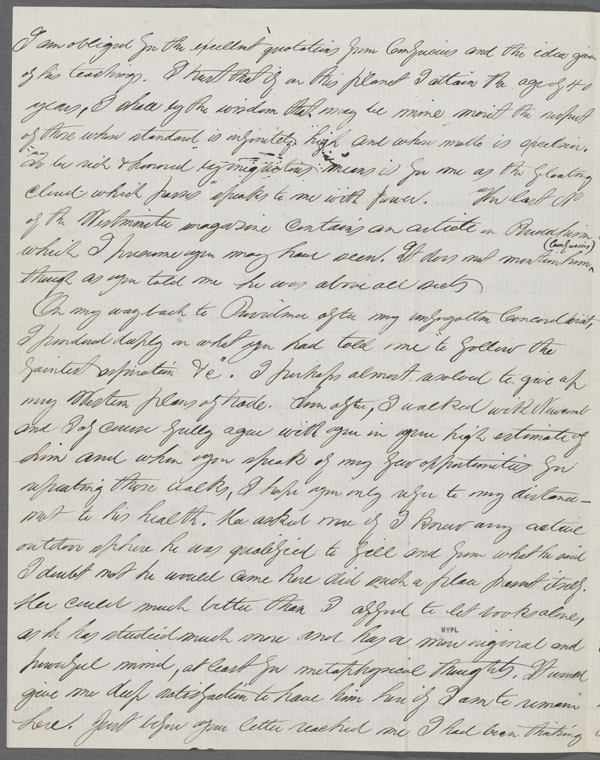 I am obliged for the excellent quotations from Confucius and the idea given
of his teachings. I trust that if on this planet I attain the age of 40
years, I shall by the wisdom that may be mine merit the respect
of those whose standard is infinitely high and whose motto is excelsior.
"To be rich & honored by iniquitous means is for me as the floating
cloud which passes" speaks to me with power. The last No
of the Westminster magazine contains an article on Buddhism
which I presume you may have seen. It does not mention him (Confucius)
though as you told me he was above all sects
On my way back to Providence after my unforgotten Concord visit,
I pondered deeply on what you had told me "to follow the
faintest aspiration &c". I perhaps almost resolved to give up
my Western plans of trade. Soon after, I walked with Newcomb
and I of course fully agree with you in your high estimate of
him and when you speak of my few opportunities for
repeating those walks, I hope you only refer to my distance—
not to his health. He asked me if I knew any active
outdoor sphere he was qualified to fill and from what he said
I doubt not he would come here did such a place present itself.
He could much better than I afford to let books alone,
as he has studied much more and has a more original and
NYPL
powerful mind, at least for metaphysical thoughts. It would
give me deep satisfaction to have him here if I am to remain
here. Just before your letter reached me I had been thinking